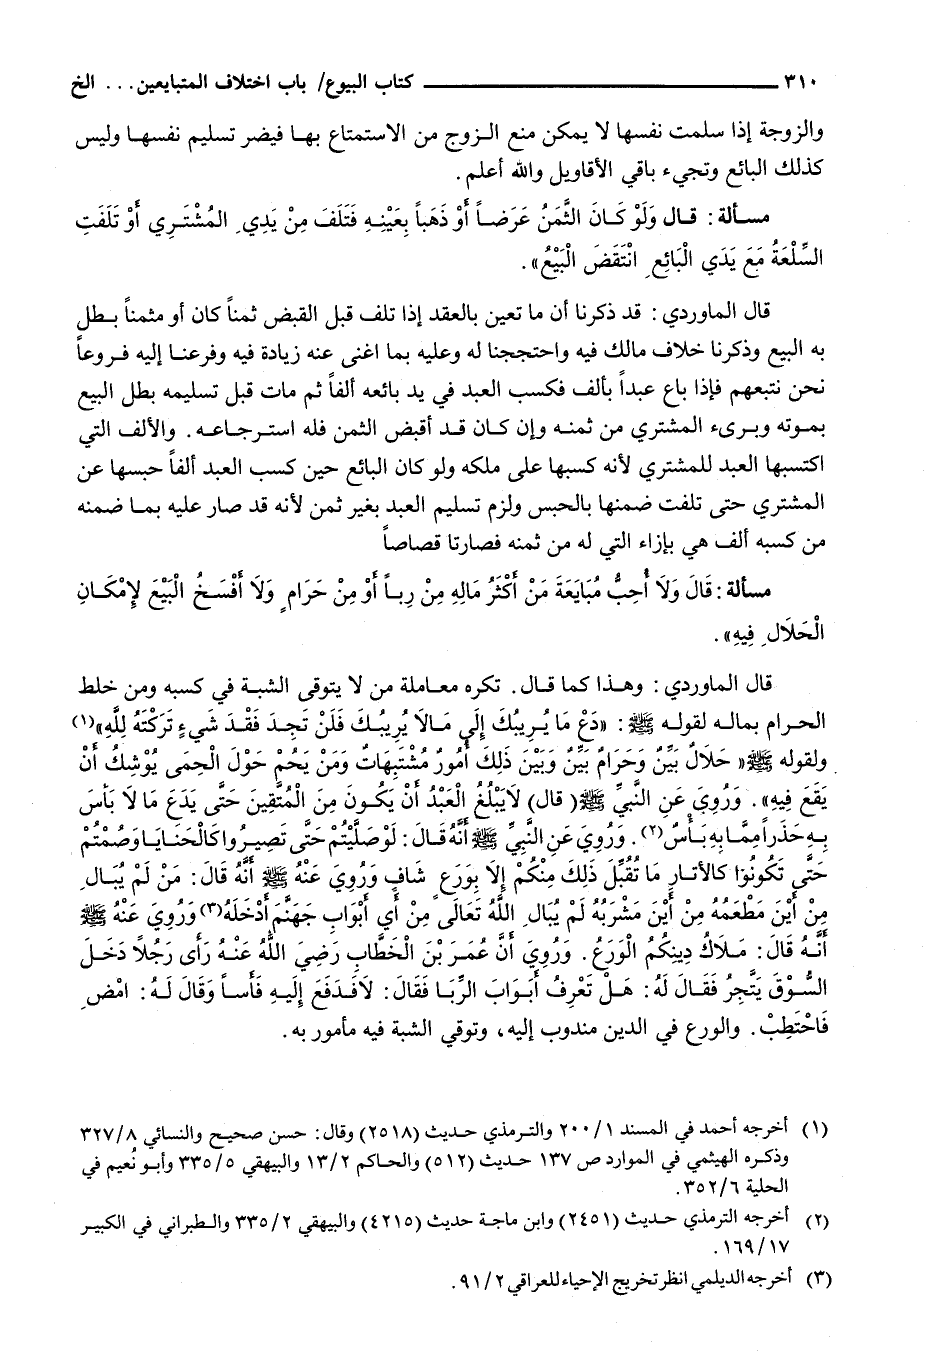 ٣١٠ ــــــــــ كتاب البيوع/ باب اختلاف المتبايعين . . . الخ
والزوجة إذا سلمت نفسها لا يمكن منع الزوج من الاستمتاع بها فيضر تسليم نفسها وليس
كذلك البائع وتجيء باقي الأقاويل والله أعلم.
مسألة: قال وَلَوْ كَانَ الثَّمَنُ عَرَضاً أَوْ ذَهَباً بِعَيْنِهِ فَتَلَفَ مِنْ يَدِي الْمُشْتَرِي أَوْ تَلَفَتِ
السِّلْعَةُ مَعَ يَدَي الْبَائِعِ انْتَقَضَ الْبَيْعُ».
قال الماوردي: قد ذكرنا أن ما تعين بالعقد إذا تلف قبل القبض ثمناً كان أو مثمناً بطل
به البيع وذكرنا خلاف مالك فيه واحتججنا له وعليه بما اغنى عنه زيادة فيه وفرعنا إليه فروعاً
نحن نتبعهم فإذا باع عبداً بألف فكسب العبد في يد بائعه ألفاً ثم مات قبل تسليمه بطل البيع
بموته وبرىء المشتري من ثمنه وإن كان قد أقبض الثمن فله استرجاعه. والألف التي
اكتسبها العبد للمشتري لأنه كسبها على ملكه ولو كان البائع حين كسب العبد ألفاً حبسها عن
المشتري حتى تلفت ضمنها بالحبس ولزم تسليم العبد بغير ثمن لأنه قد صار عليه بما ضمنه
من كسبه ألف هي بإزاء التي له من ثمنه فصارتا قصاصاً
مسألة: قَالَ وَلَا أُحِبُّ مُبَايَعَةَ مَنْ أَكْثَرُ مَالِهِ مِنْ رِباً أَوْ مِنْ حَرَامٍ وَلَا أَفْسَخُ الْبَيْعَ لِإِمْكَانِ
الْحَلَالِ فِيهِ».
قال الماوردي: وهذا كما قال. تكره معاملة من لا يتوقى الشبة في كسبه ومن خلط
الحرام بماله لقوله ﷺ: «دَعْ مَا يُرِيبُكَ إِلَى مَالَا يُرِيبُكَ فَلَنْ تَجِدَ فَقْدَ شَيْءٍ تَرَكْتَهُ لِلَّهِ»(١)
ولقوله ﷺ« حَلَالٌ بَيِّنٌ وَحَرَامٌ بَيِّنٌ وَبَيْنَ ذَلِكَ أُمُورٌ مُشْتَبِهَاتٌ وَمَنْ يَحُمْ حَوْلَ الْحِمَى يُوْشِكُ أَنْ
يَقَعَ فِيهِ». وَرُوِيَ عَنِ النَّبِيِّ ﷺ( قال) لَا يَبْلُغُ الْعَبْدُ أَنْ يَكُونَ مِنَ الْمُتَّقِينَ حَتَّى يَدَعَ مَا لَا بَأْسَ
بِهِ حَذَراً مِمَّا بِهِ بَأْسٌ(٢). وَرُوِيَ عَنِ النَّبِيِّ ﷺ أَنَّهُ قَالَ: لَوْ صَلَّيْتُمْ حَتَّى تَصِيرُوا كَالْحَنَايَا وَصُمْتُمْ
حَتَّى تَكُونُوا كالأتارِ مَا تُقُبِّلَ ذَلِكَ مِنْكُمْ إِلَّا بِوَرَعٍ شَافٍ وَرُوِيَ عَنْهُ ﷺ أَنَّهُ قَالَ: مَنْ لَمْ يُبَالِ
مِنْ أَيْنَ مَطْعَمُهُ مِنْ أَيْنَ مَشْرَبُهُ لَمْ يُبَالِ اللَّهُ تَعَالَى مِنْ أَي أَبْوَابِ جَهَنَّمَ أَدْخَلَهُ(٣) وَرُوِيَ عَنْهُ ﷺ
أَنَّهُ قَالَ: مَلَاكُ دِينِكُمُ الْوَرَعُ. وَرُوِيَ أَنَّ عُمَرَ بْنَ الْخَطَّابِ رَضِيَ اللَّهُ عَنْهُ رَأَى رَجُلًا دَخَلَ
السُّوْقَ يَتَّجِرُ فَقَالَ لَهُ: هَلْ تَعْرِفُ أَبْوَابَ الرِّبَا فَقَالَ: لَا فَدَفَعَ إِلَيْهِ فَأْساً وَقَالَ لَهُ: امْضِ
فَاحْتَطِبْ. والورع في الدين مندوب إليه، وتوقي الشبة فيه مأمور به.
(١) أخرجه أحمد في المسند ٢٠٠/١ والترمذي حديث (٢٥١٨) وقال: حسن صحيح والنسائي ٣٢٧/٨
وذكره الهيثمي في الموارد ص ١٣٧ حديث (٥١٢) والحاكم ١٣/٢ والبيهقي ٣٣٥/٥ وأبو نُعيم في
الحلية ٣٥٢/٦.
(٢) أخرجه الترمذي حديث (٢٤٥١) وابن ماجة حديث (٤٢١٥) والبيهقي ٣٣٥/٢ والطبراني في الكبير
١٦٩/١٧.
(٣) أخرجه الديلمي انظر تخريج الإحياء للعراقي ٩١/٢.